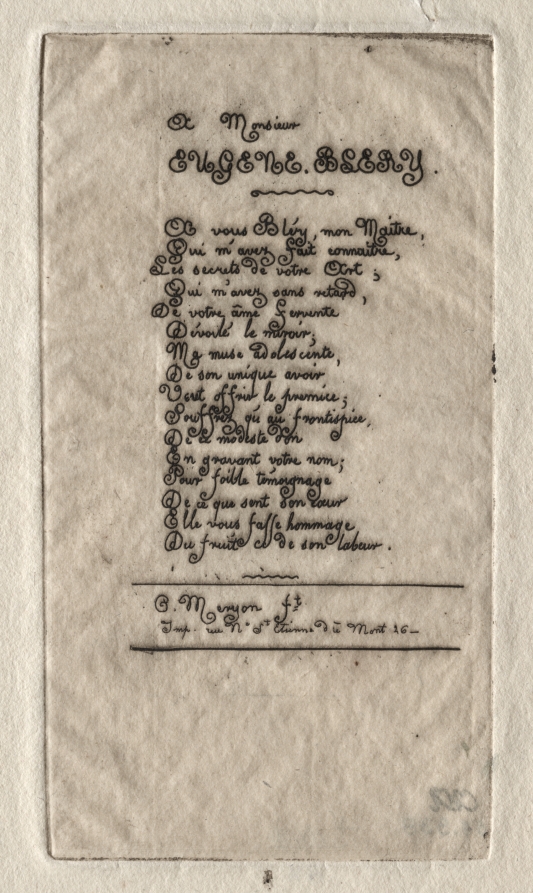 A Monsieur
EUGENE. BLERY.
A vous Bléry, mon Maitre,
Qui m'avez fait connaitre,
Les secrets de votre Art;
Qui m'avez sans retard,
De votre âme fervente
Dévoilé le miroir;
Ma muse adolescente,
De son unique avoir
Veut offrir le premice;
Souffrez qu'au frontispice,
De ce modeste don
En gravant votre nom;
Pour foible témoignage
De ce que sent son cœur
Elle vous fasse hommage
Du fruit de son labeur.
C. Meryon ft
Imp. rue Ne St Etienne du Mont 26